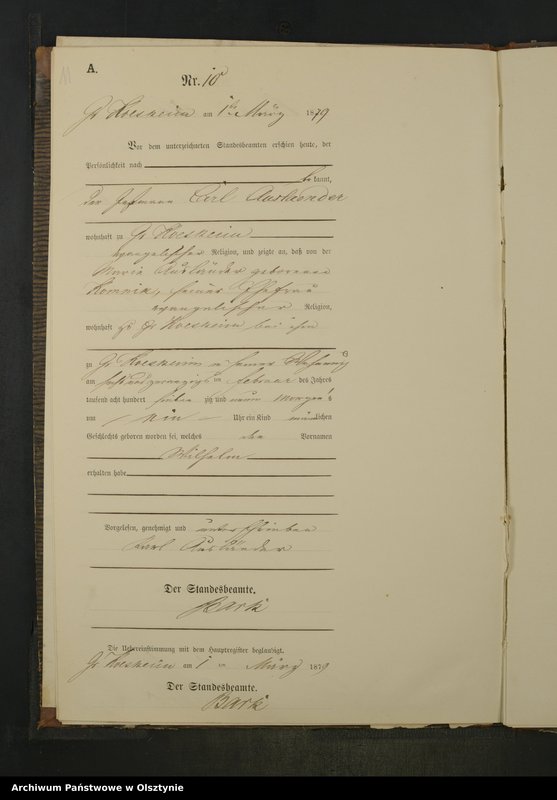 11
A.
Nr. 10
Gr Hoesseim am 1ten März 1879
Vor dem unterzeichneten Standesbeamten erschien heute, der
Persönlichkeit nach
be kannt,
der Carl Auslaender
wohnhaft zu Gr Hoesseim
evangelischer Religion, und zeigte an, daß von der
Maria Ausländer geborenen
Komnik, seiner Ehefrau
evangelischer Religion,
wohnhaft zu Gr Hoesseim bei ihm
zu Gr Hoesseim in seiner Wohnung
am sechsundzwanzigsten Februar des Jahres
tausend acht hundert sieben zig und neun Morgens
um ein Uhr ein Kind männlichen
Geschlechts geboren worden sei, welches den Vornamen
Wilhelm
erhalten habe
Vorgelesen, genehmigt und unterschrieben
Carl Ausländer
Der Standesbeamte.
Bark
Die Uebereinstimmung mit dem Hauptregister beglaubigt.
Gr Hoesseim am 1 ten März 1879
Der Standesbeamte.
Bark
Archiwum Państwowe w Olsztynie